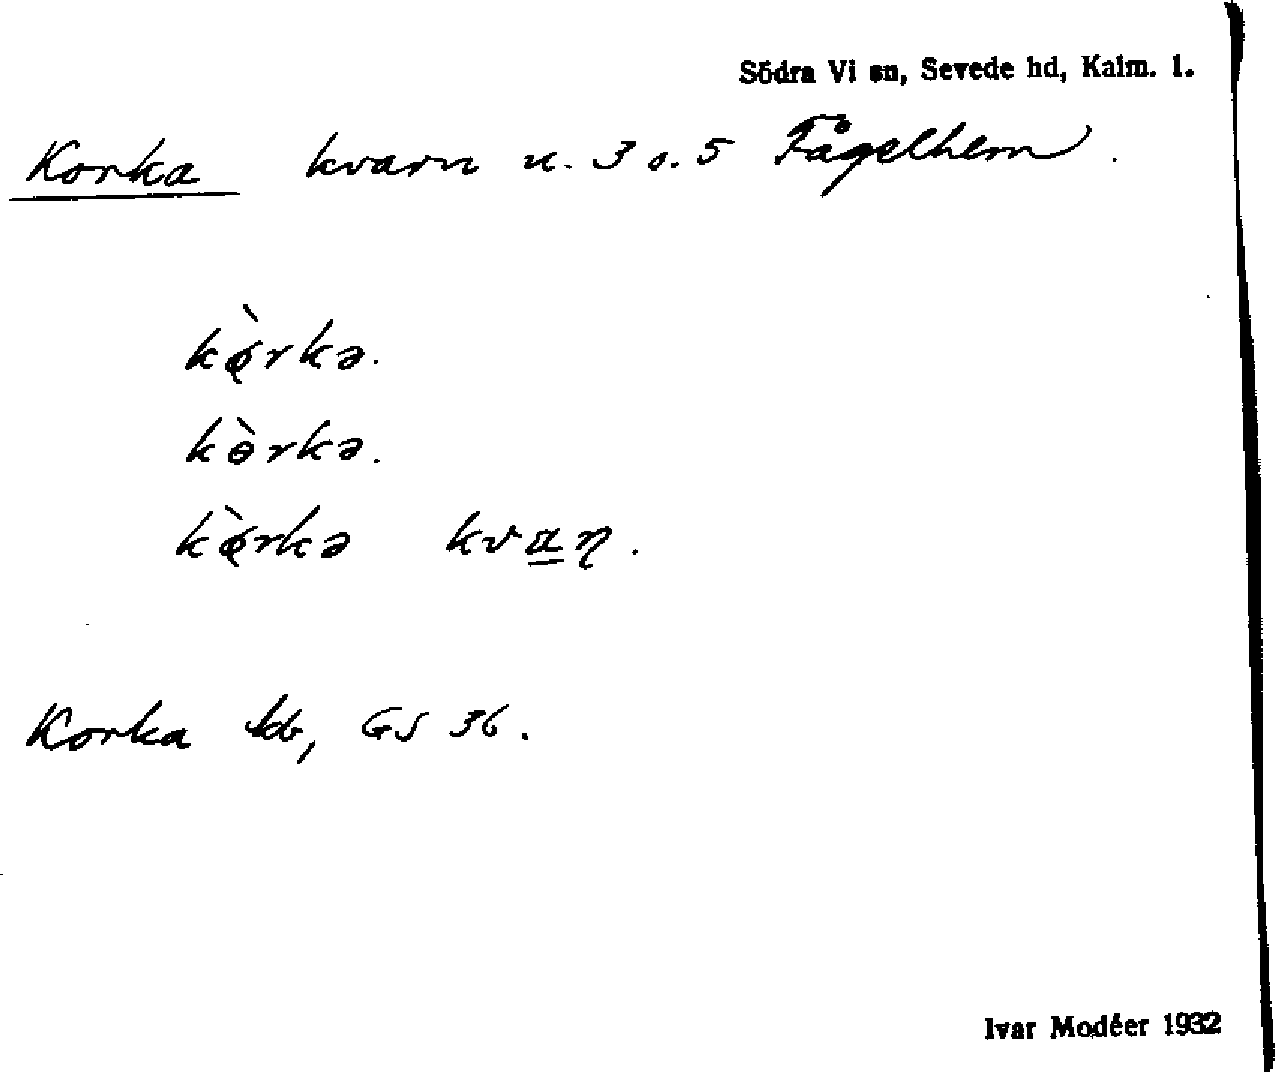 Södra Vi sn, Sevede hd, Kalm. l.
Korka kvarn u. 3 o. 5 Fågelhem.
kǫ̀rkə.
kɵ̀rkə.
kǫ̀rkə kvan̨.
Korka GS 36.
Ivar Modéer 1932